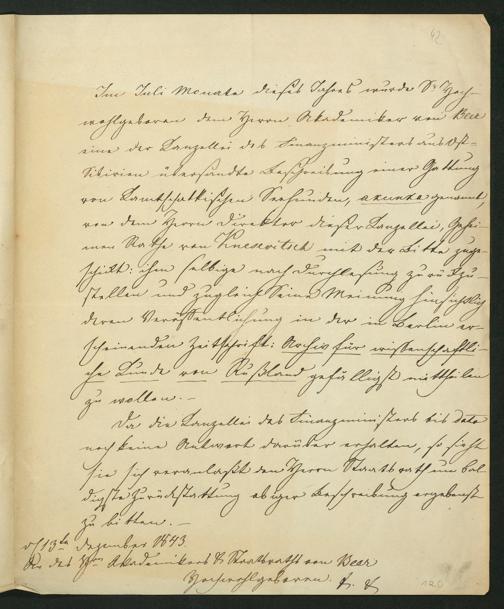 42
Im Juli Monate dieses Jahres wurde Sr Hoch-
wohlgeboren dem Herrn Akademiker von Baer
eine der Canzellei des Finanzministers aus Ost-
Sibirien übersandte Beschreibung einer Gattung
von Kamtschatkischen Seehunden, genannt,
von dem Herrn Direktor dieser Canzellei, Gehei-
men Rathe von Knesewitsch mit der Bitte zuge-
schickt: ihm selbige nach Durchlesung zurückzu-
stellen und zugleich Seine Meinung hinsichtlich
deren Veröffentlichung in der in Berlin er-
scheinenden Zeitschrift: Archiv für wissenschaftli-
che Kunde von Rußland gefälligst mittheilen
zu wollen. –
Da die Canzellei des Finanzministers bis dato
noch keine Antwort darüber erhalten, so sieht
sie sich veranlaßt den Herrn Staatsrath um bal-
digste Zurückstattung obiger Beschreibung ergebenst
zu bitten. –
13te Dezember 1843.
des Akademikers & Staatsraths von Baer
Hochwohlgeboren. &. &